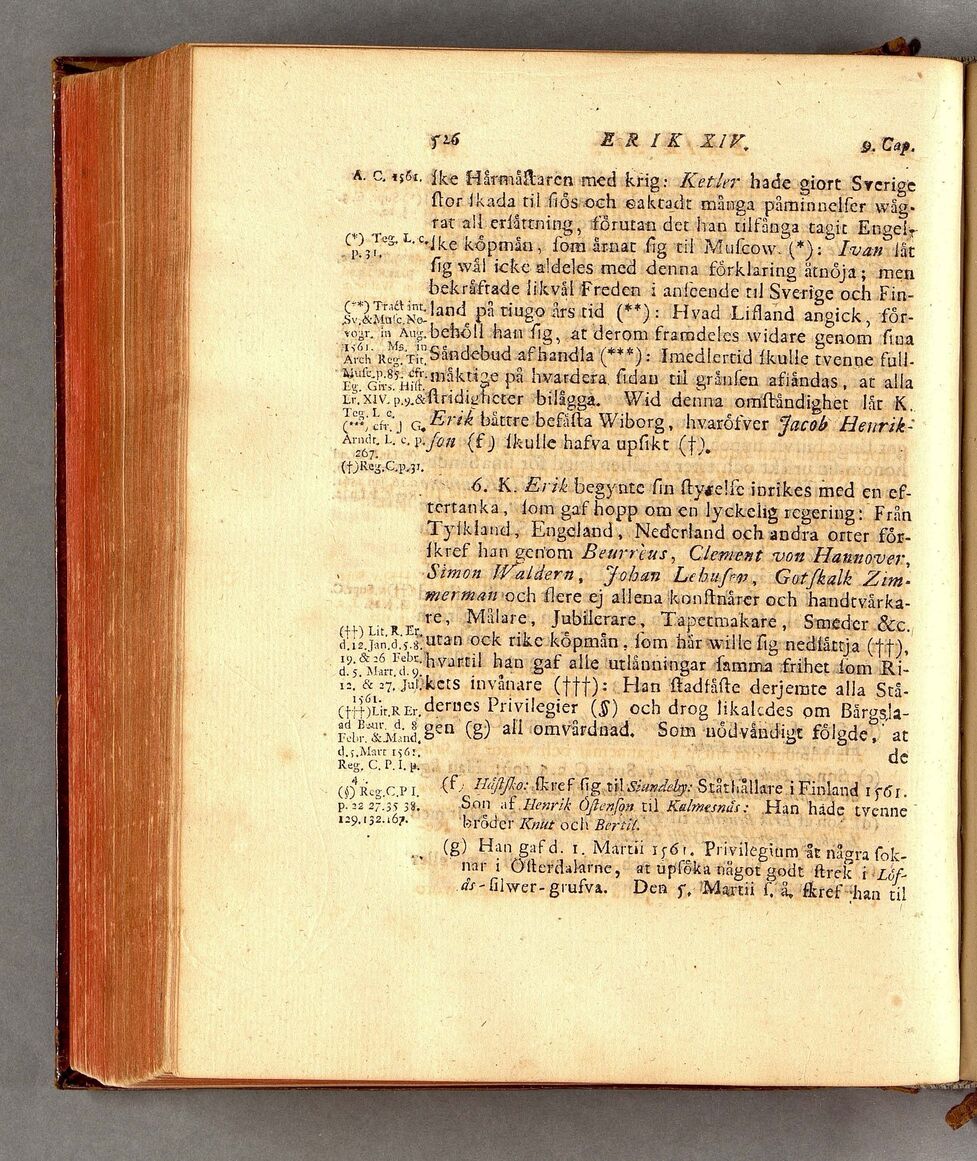 526 ERIK XIV. 9. Cap.
A. C. 1561.
ſke Hårmåſtaren med krig: Ketler hade giort Sverige
ſtor ſkada til ſiös och oaktadt många påminnelſer wåg-
rat all erſåttning, förutan det han tilfånga tagit Engel-
ſke köpmån, ſom årnat ſig til Muſcow. (*): Ivan låt
ſig wål icke aldeles med denna förklaring åtnöja; men
bekråftade likvål Freden i anſeende til Sverige och Fin-
land på tiugo års tid (**): Hvad Lifland angick, för-
behöll han ſig, at derom framdeles widare genom ſina
Såndebud afhandla (***): Imedlertid ſkulle tvenne full-
måktige på hvardera ſidan til grånſen afſåndas, at alla
ſtridigheter bilågga. Wid denna omſtåndighet låt K.
Erik båttre befåſta Wiborg, hvaröfver Jacob Henrik-
ſon (f) ſkulle hafva upſikt (†).
(*) Teg. L. c.
p. 31.
(**) Tract int.
Sv. & Muſc. No-
vogr. in Aug.
1561. Mſ. in
Arch Reg. Tit.
Muſc. p. 85. cfr.
Eg. Girs. Hiſt.
Er. XIV. p. 9. &
Teg. L c.
(***) cfr. J G.
Arndt. L. c. p.
267.
(†) Reg. C. p. 31.
6. K. Erik begynte ſin ſtyrelſe inrikes med en ef-
tertanka, ſom gaf hopp om en lyckelig regering: Från
Tyſkland, Engeland, Nederland och andra orter för-
ſkref han genom Beurreus, Clement von Hannover,
Simon Waldern, Johan Lehuſen, Gotſkalk Zim-
merman och flere ej allena konſtnårer och handtvårka-
re, Målare, Jubilerare, Tapetmakare, Smeder &c.
utan ock rike köpmån, ſom hår wille ſig nedſåttja (††),
hvartil han gaf alle utlånningar ſamma frihet ſom Ri-
kets invånare (†††): Han ſtadfåſte derjemte alla Stå-
dernes Privilegier (§) och drog likaledes om Bårgsla-
gen (g) all omvårdnad. Som nödvåndigt fölgde, at
de
(††) Lit. R. Er.
d. 12. Jan. d. 5. 8.
19. & 26 Febr.
d. 5. Mart. d. 9.
12. & 27. Jul.
1561.
(†††) Lit. R Er.
ad Beur. d. 8
Febr. & Mand.
d. 5. Mart 1561.
Reg. C. P. I. p.
4.
(§) Reg. C. P I.
p. 22 27. 35 38.
129. 132. 167.
(f) Håſtſko: ſkref ſig til Siundeby: Ståthållare i Finland 1561.
Son af Henrik Öſtenſon til Kalmesnås: Han hade tvenne
bröder Knut och Bertil.
(g) Han gaf d. 1. Martii 1561. Privilegium åt några ſok-
nar i Öſterdalarne, at upſöka något godt ſtrek i Löf-
ås-ſilwer-grufva. Den 5. Martii ſ. å. ſkref han til